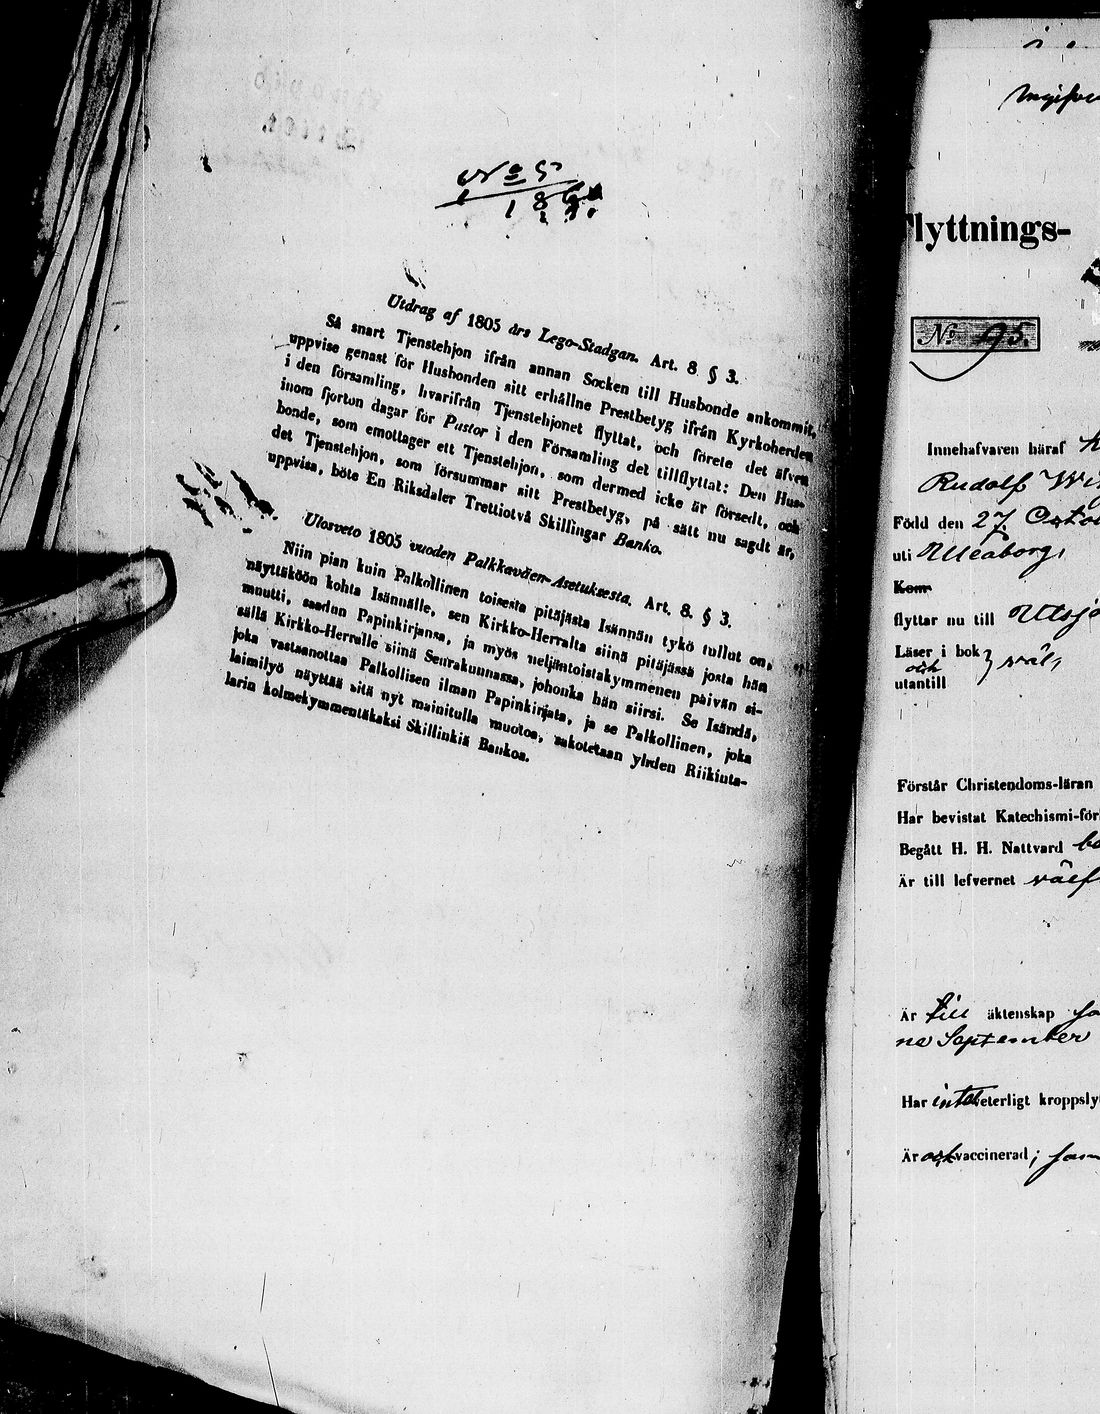 No 5
Utdrag af 1805 års Lego-Stadgan. Art. 8 § 3.
Så snart Tjenstehjon ifrån annan Socken till Husbonde ankommit,
uppvise genast för Husbonden sitt erhållne Prestbetyg ifrån Kyrkoherden
i den församling, hvarifrån Tjenstehjonet flyttat, och förete det äfven
inom fjorton dagar för Pastor i den Församling det tillflyttat: Den Hus-
bonde, som emottager ett Tjenstehjon, som dermed icke är försedt, och
det Tjenstehjon, som försummar sitt Prestbetyg, på sätt nu sagdt är,
uppvisa, böte En Riksdaler Trettiotvå Skillingar Banko.
Ulosveto 1805 vuoden Palkkaväen-Asetuksesta. Art. 8. § 3.
Niin pian kuin Palkollinen toisesta pitäjästa Isännän tykö tullut on,
näyttäköön kohta Isännälle, sen Kirkko-Herralta siinä pitäjässä josta hän
muutti, saadun Papinkirjansa, ja myös neljäntoistakymmenen päivän si-
sällä Kirkko-Herralle siinä Seurakunnassa, johonka hän siirsi. Se Isändä,
joka vastaanottaa Palkollisen ilman Papinkirjata, ja se Palkollinen, joka
laimilyö näyttää sitä nyt mainitulla muotoa, sakotetaan yhden Riikinta-
larin kolmekymmentäkaksi Skillinkiä Bankoa.
Flyttnings-
No 95.
Innehafvaren häraf
Rudolf
Född den 27
uti Uleåborg,
Kom
flyttar nu till
Läser i bok
och
väl,
utantill
Förstår Christendoms-läran
Har bevistat Katechismi-för
Begått H. H. Nattvard
Är till lefvernet
Är till äktenskap
ne September
Har intet veterligt kroppsly
Är och vaccinerad;